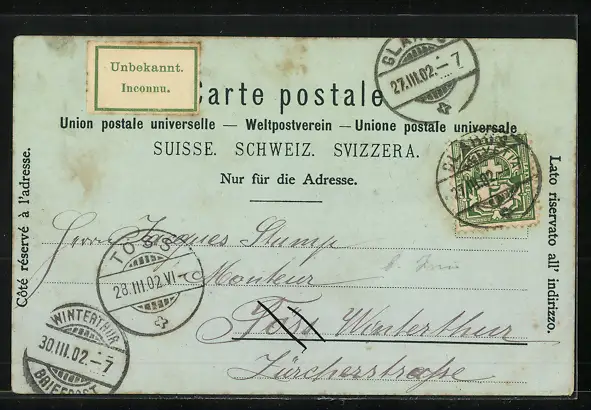 Unbekannt.
Inconnu.
GLARUS
27.III.02.–7
Carte postale
Union postale universelle — Weltpostverein — Unione postale universale
SUISSE. SCHWEIZ. SVIZZERA.
Nur für die Adresse.
Côté réservé à l'adresse.
Lato riservato all' indirizzo.
GLARUS
Herrn Jacques Stump
TÖSS
28.III.02.VI
Monteur
Töss Winterthur
Zürcherstraße
WINTERTHUR
30.III.02.–7
BRIEFPOST